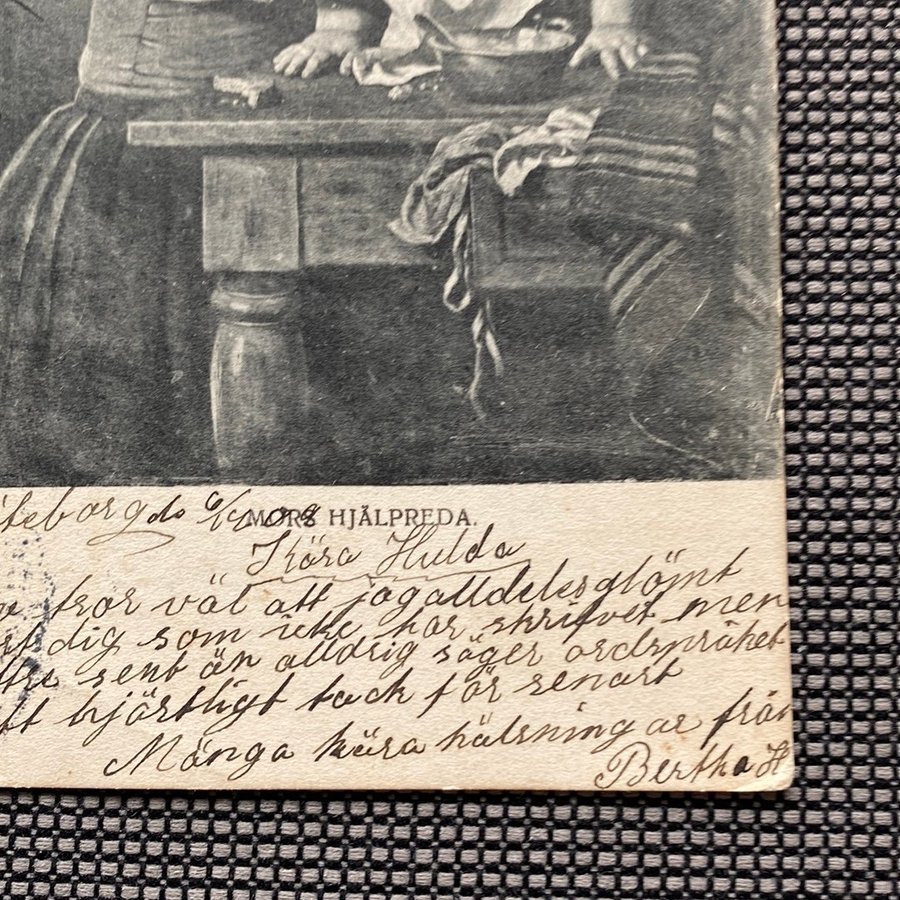 MORS HJÄLPREDA.
teborg
Kära Hulda
tror väl att jag alldeles glömt
dig som icke har skrifvet men
sent än alldrig säger ordspråket
hjärtligt tack för senast
Många kära hälsningar från
Bertha H